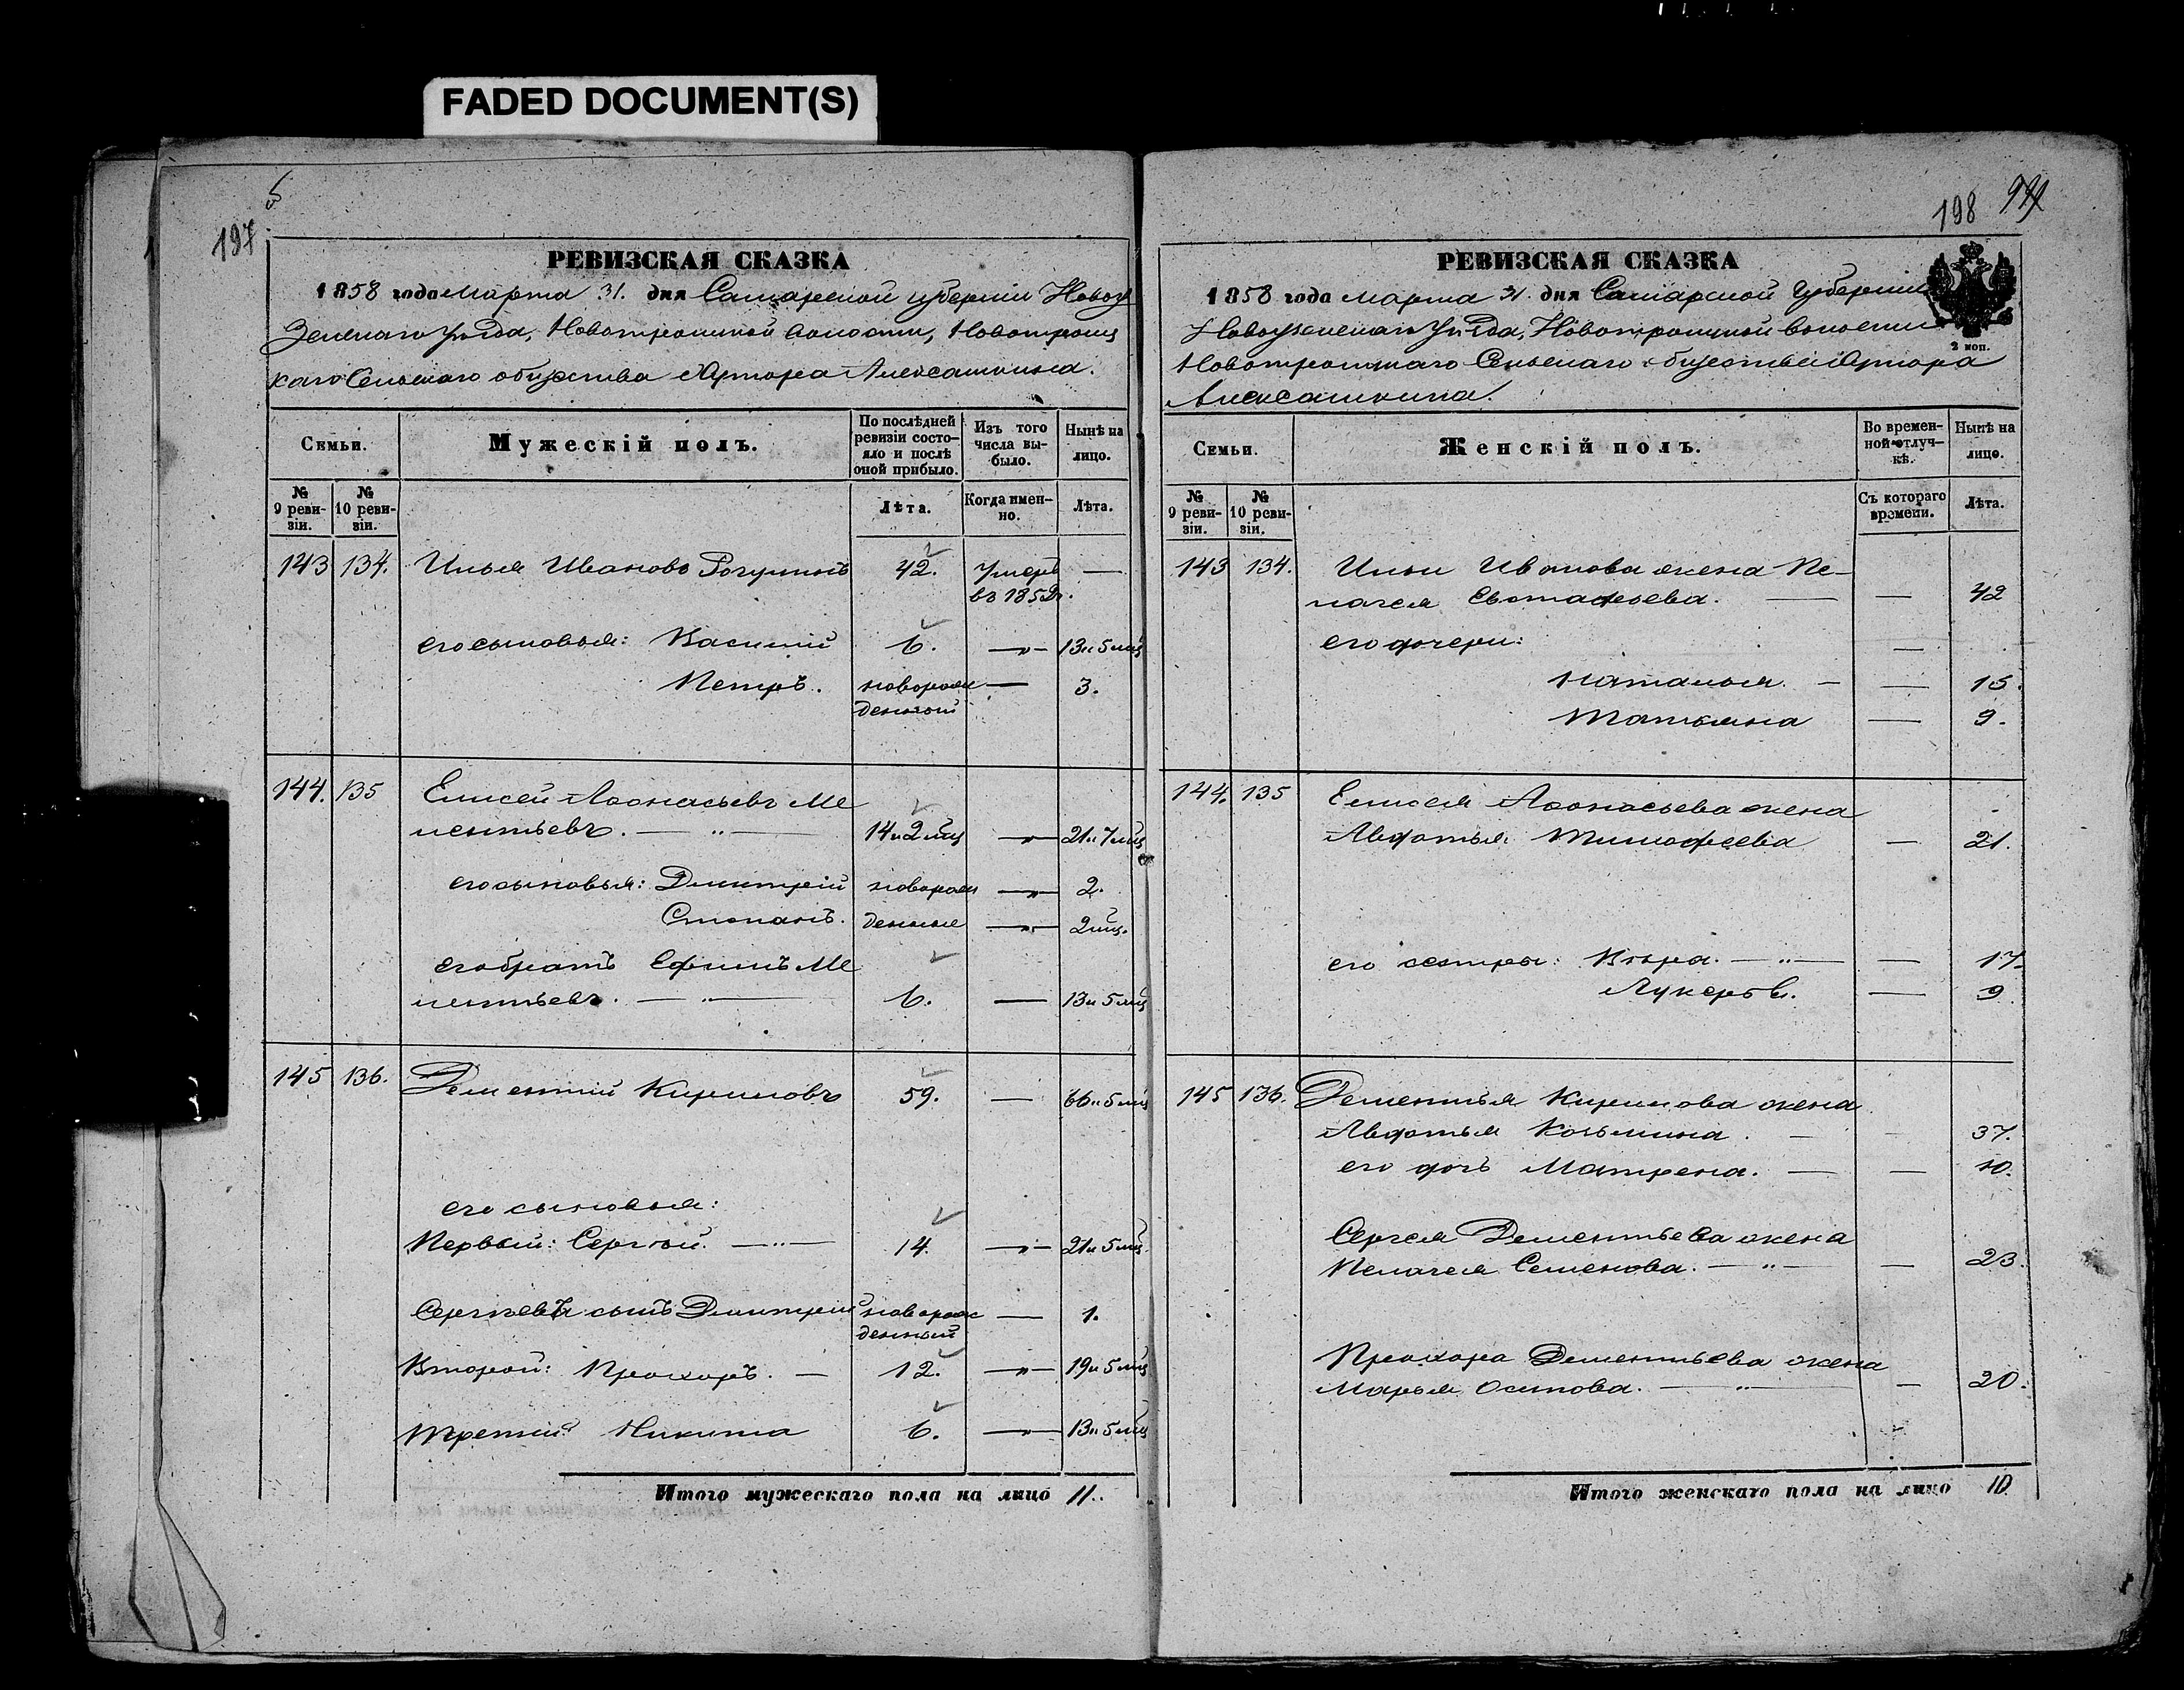 FADED DOCUMENT(S)
197
РЕВИЗСКАЯ СКАЗКА
1858 года Марта 31. дня Самарской губернии Новоу
зенскаго Уѣзда, Новотроицкой волости, Новотроиц
каго Сельскаго общества хутора Алексашкина.
Семьи.
Мужескій полъ.
По послѣдней ревизіи состояло и послѣ оной прибыло.
Изъ того числа выбыло.
Нынѣ на лицо.
№ 9 ревизіи.
№ 10 ревизіи.
Лѣта.
Когда именно.
Лѣта.
143 134. Илья Ивановъ 42. Умеръ —
въ 185
его сыновья: Василий 6. —"— 13 и 5 мц
Петръ. новорож — 3.
денный
144. 135 Елисей Афонасьевъ Ме
лентьевъ. — " — 14 и 2 мц —"— 21 и 7 мц
его сыновья: Дмитрій новорож —"— 2.
Степанъ. денные —"— 2 мц.
его братъ Ефимъ Ме
лентьевъ. — " — 6. — 13 и 5 мц
145 136. Дементий Кириловъ 59. — 66 и 5 мц
его сыновья:
Первый: Сергѣй. — " — 14. —"— 21 и 5 мц.
Сергѣевъ сынъ Дмитрий новорож — 1.
денный
Второй: Прохоръ. — 12. —"— 19 и 5 мц
Третий Никита 6. —"— 13 и 5 мц
Итого мужескаго пола на лицо 11.
198
РЕВИЗСКАЯ СКАЗКА
1858 года Марта 31. дня Самарской Губернии
Новоузенскаго Уѣзда, Новотроицкой волости
Новотроицкаго Сельскаго общества хутора
Алексашкина.
2 коп.
Семьи.
Женскій полъ.
Во временной отлучкѣ.
Нынѣ на лицо.
№ 9 ревизіи.
№ 10 ревизіи.
Съ котораго времени.
Лѣта.
143 134. Ильи Иванова жена Пе-
лагея Евстафьева. — — 42
его дочери: —
Наталья. — — 15.
Татьяна — 9.
144. 135 Елисея Афонасьева жена
Авдотья Тимофеева — 21.
его сестры: Вѣра. — " — — 17.
Лукерья. — 9
145 136. Дементья Кирилова жена
Авдотья Козьмина. — — 37.
его дочь Матрена. — — 10.
Сергея Дементьева жена
Пелагея Семенова. — " — — 23.
Прохора Дементьева жена
Марья Осипова. — " — — 20.
Итого женскаго пола на лицо 10